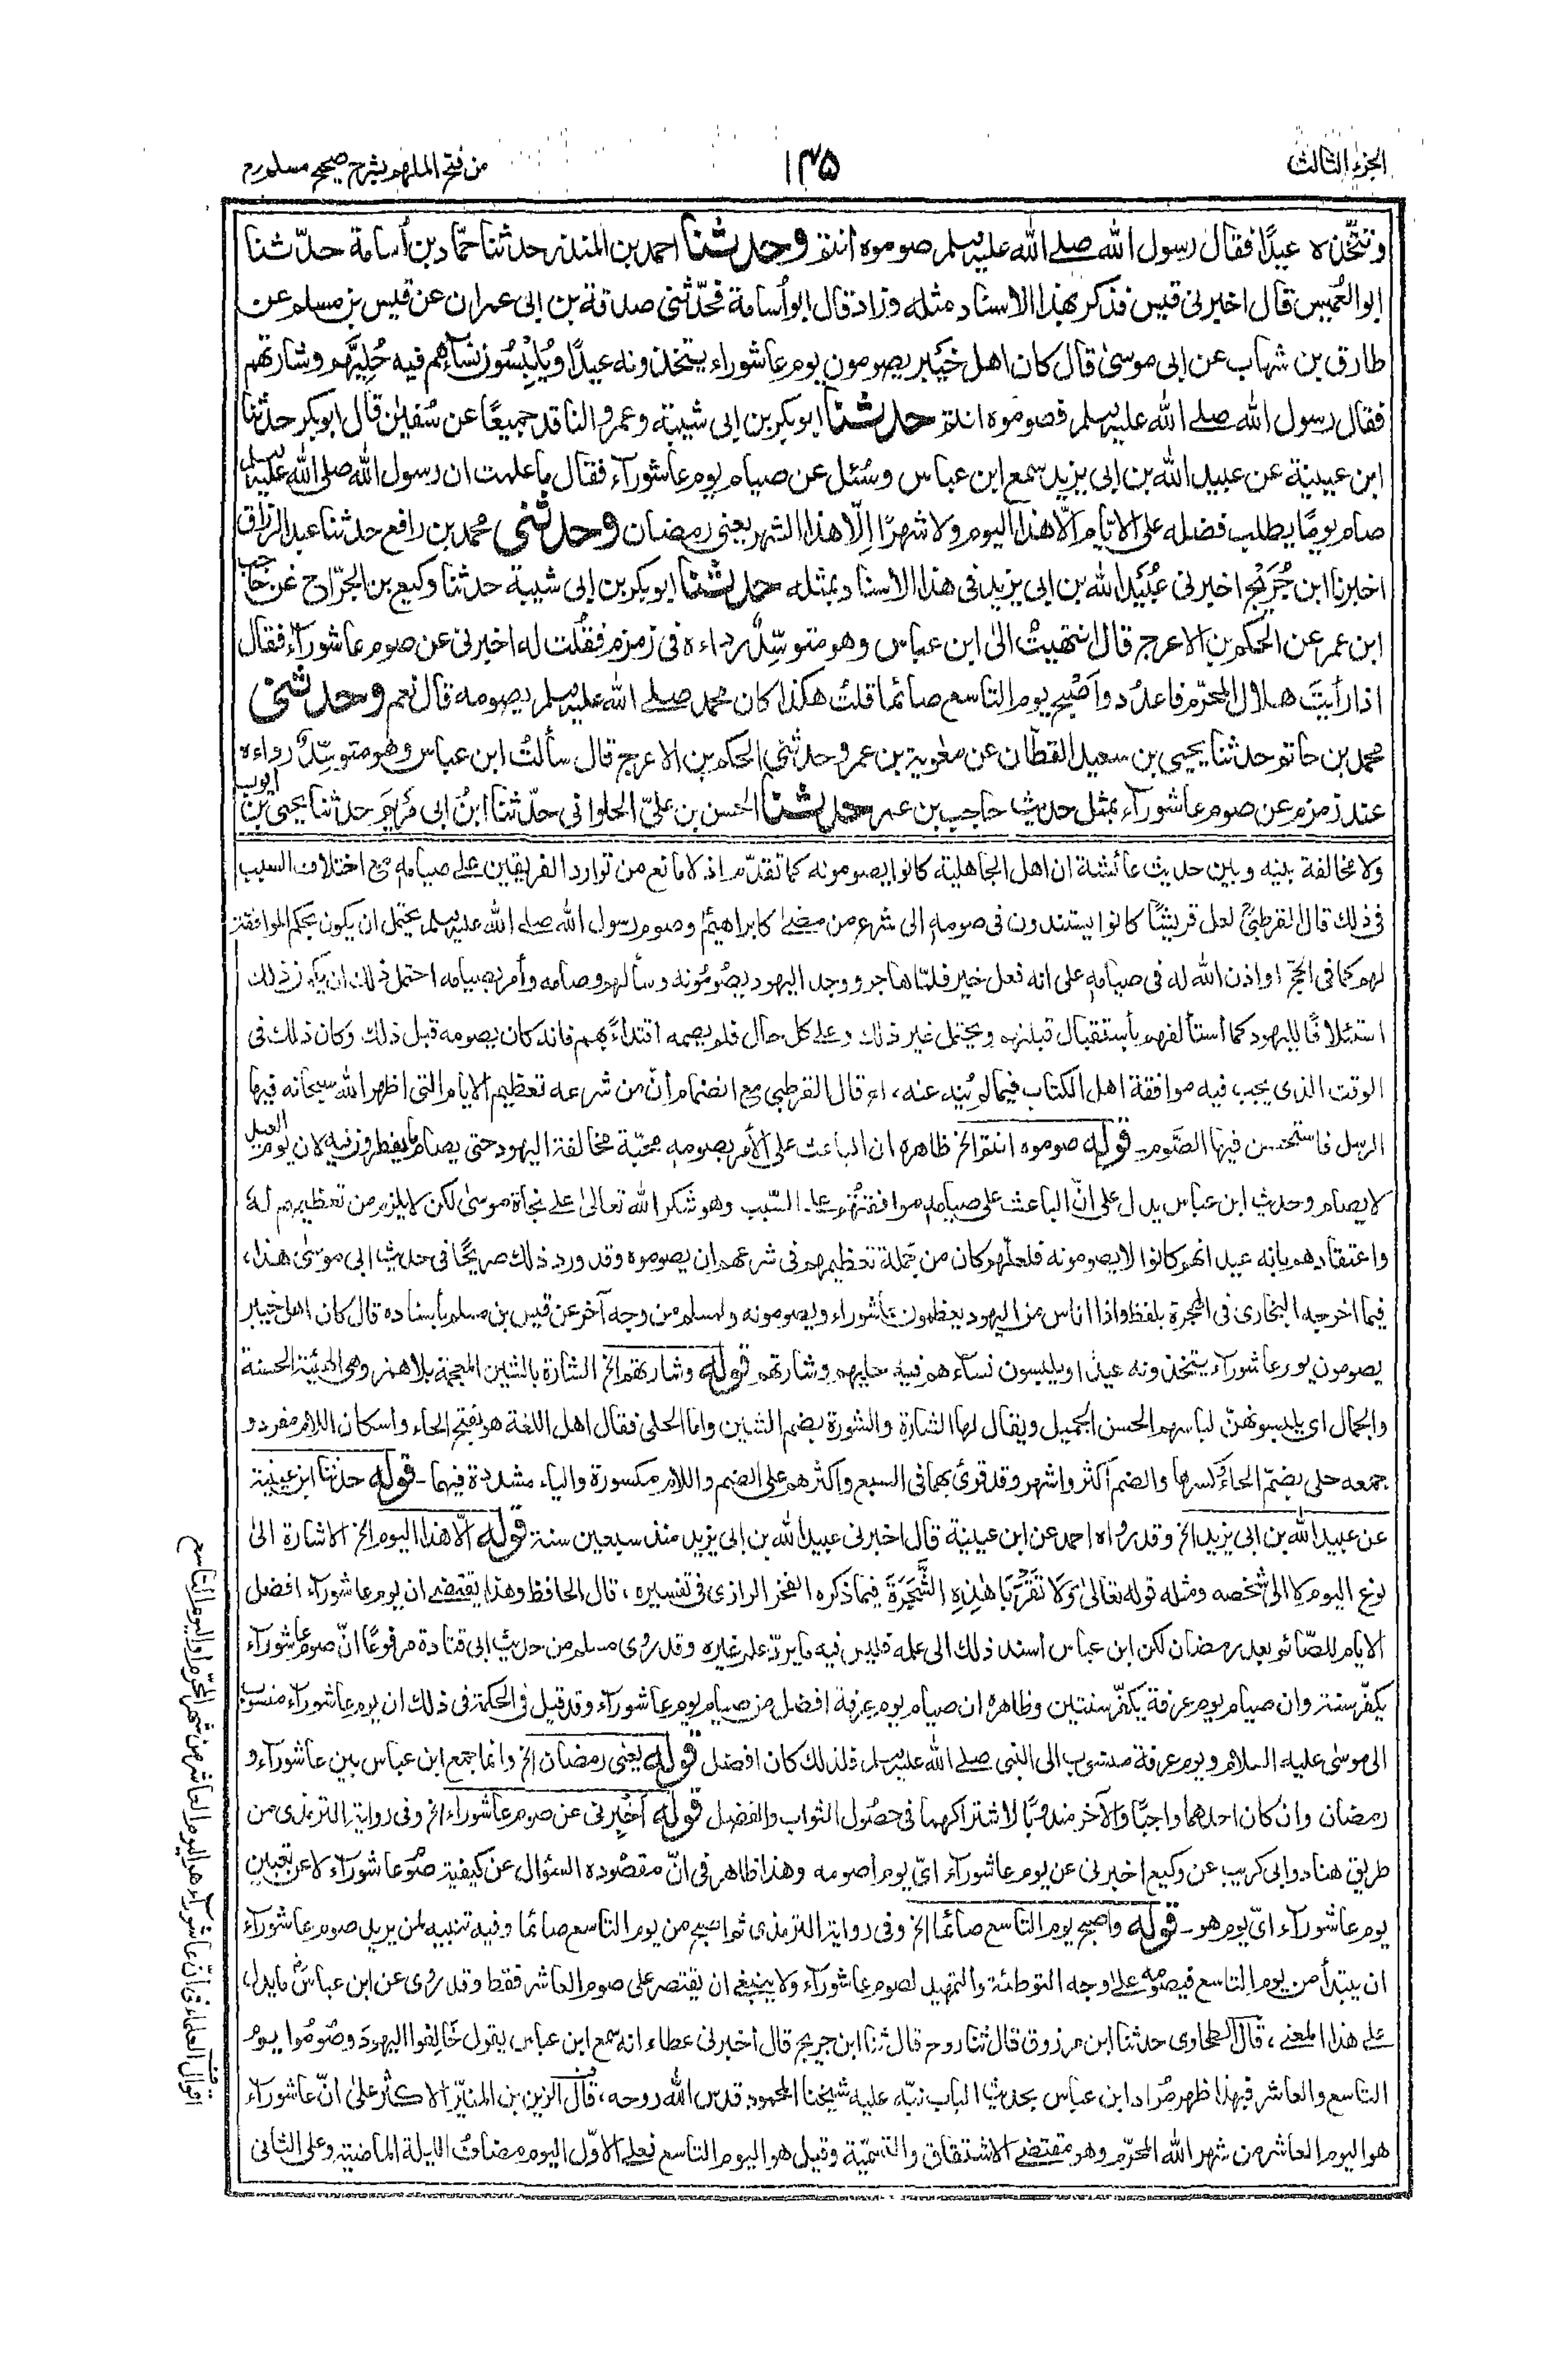 الجزء الثالث
١٣٥
من فتح الملهم بشرح صحيح مسلم رح
وتتّخذه عيدًا فقال رسول الله صلى الله عليه وسلم صوموه انتم وحدثنا احمد بن المنذر حدثنا حمّاد بن أسامة حدّثنا
ابو العُميس قال اخبرني قيس فذكر بهذا الاسناد مثله وزاد قال ابو أسامة فحدّثني صدقة بن ابي عمران عن قيس بن مسلم عن
طارق بن شهاب عن ابي موسىٰ قال كان اهل خَيْبر يصومون يوم عاشوراء يتخذونه عيدًا ويُلْبِسُون نساءهم فيه حُلِيَّهم وشارتهم
فقال رسول الله صلى الله عليه وسلم فصوموه انتم حدثنا ابو بكر بن ابي شيبة وعمرو الناقد جميعًا عن سُفين قال ابو بكر حدثنا
ابن عيينة عن عبيد الله بن ابي يزيد سمع ابن عباس وسُئل عن صيام يوم عاشورآء فقال ما علمت ان رسول الله صلى الله عليه وسلم
صام يومًا يطلب فضله على الايّام الّا هذا اليوم ولا شهرًا اِلّا هذا الشهر يعني رمضان وحدثني محمد بن رافع حدثنا عبد الرزاق
اخبرنا ابن جُرَيْج اخبرني عُبَيد الله بن ابي يزيد في هذا الأسناد بمثله حدثنا ابو بكر بن ابي شيبة حدثنا وكيع بن الجرّاح عن حاجب
ابن عمر عن الحكم بن الاعرج قال انتهيتُ الىٰ ابن عباس وهو متوسّدٌ رداءه في زمزم فقُلت له اخبرني عن صوم عاشورآء فقال
اذا رأيتَ هلال المحرّم فاعدُد واَصْبِح يوم التاسع صائما قلتُ هكذا كان محمد صلى الله عليه وسلم يصومه قال نعم وحدثني
محمد بن حاتم حدثنا يحيى بن سعيد القطّان عن معٰوية بن عمرو حدثني الحكم بن الاعرج قال سألتُ ابن عباس وهو متوسّدٌ رداءه
عند زمزم عن صوم عاشورآء بمثل حديث حاجب بن عمر حدثنا الحسن بن علىّ الحلواني حدّثنا ابنُ ابي مَريَم حدثنا يحيى بن ايوب
ولا مخالفة بينه وبين حديث عائشة ان اهل الجاهلية كانوا يصومونه كما تقدّم اذ لا مانع من توارد الفريقين على صيامه مع اختلاف السبب
في ذلك قال القرطبيّ لعل قريشًا كانوا يستندون في صومه الى شرع من مضى كابراهيم وصوم رسول الله صلى الله عليه وسلم يحتمل ان يكون بحكم الموافقة
لهم كما في الحجّ او اذن الله له في صيامه على انه فعل خير فلمّا هاجر ووجد اليهود يصُومُونه وسألهم وصامه وأمر بصيامه احتمل ذلك ان يكون ذلك
استئلافًا لليهود كما استألفهم بأستقبال قبلتهم ويحتمل غير ذلك وعلى كل حال فلم يصمه اقتداءً بهم فانه كان يصومه قبل ذلك وكان ذلك في
الوقت الذى يحب فيه موافقة اهل الكتاب فيما لم يُنه عنه، اھ قال القرطبي مع انضمام أنّ من شرعه تعظيم الايام التى اظهر الله سبحانه فيها
الرسل فاستحسن فيها الصَّوم۔ قوله صوموه انتم الخ ظاهره ان الباعث على الأمر بصومه محبّة مخالفة اليهود حتى يصام ما يفطرون فيه لان يوم العيد
لا يصام وحديث ابن عباس يدل على انّ الباعث على صيامه موافقتُهم على السّبب وهو شكر الله تعالىٰ على نجاة موسىٰ لكن لا يلزم من تعظيمهم له
واعتقادهم بانه عيد انهم كانوا لا يصومونه فلعلّهم كان من جُملة تعظيمهم في شرعهم ان يصوموه وقد ورد ذلك صريحًا في حديث ابى موسىٰ هذا،
فيما اخرجه البخارى في الهجرة بلفظ واذا اناس من اليهود يعظمون عاشوراء ويصومونه ولمسلم من وجه آخر عن قيس بن مسلم بأسناده قال كان اهل خيبر
يصومون يوم عاشورآء يتخذونه عيدًا ويلبسون نسآءهم فيه حليهم وشارتهم قوله وشارتهم الخ الشارة بالشين المعجمة بلا همز وهى الهيئة الحسنة
والجمال اى يلبسونهنّ لباسهم الحسن الجميل ويقال لها الشارة والشورة بضم الشين واما الحلى فقال اهل اللغة هو بفتح الحاء واسكان اللام مفرد و
جمعه حلى بضمّ الحاء وكسرها والضم أكثر واشهر وقد قرئ بهما في السبع واكثرهم على الضم واللام مكسورة والياء مشددة فيهما۔ قوله حدثنا ابن عيينة
عن عبيد الله بن ابى يزيد الخ وقد رواه احمد عن ابن عيينة قال اخبرنى عبيد الله بن ابى يزيد منذ سبعين سنة قوله الّا هذا اليوم الخ الاشارة الىٰ
نوع اليوم لا الى شخصه ومثله قوله تعالىٰ وَلَا تَقْرَبَا هٰذِهِ الشَّجَرَةَ فيما ذكره الفخر الرازى في تفسيره، قال الحافظ وهذا يقتضى ان يوم عاشورآء افضل
الايام للصّائم بعد رمضان لكن ابن عباس اسند ذلك الى علمه فليس فيه ما يردّ علم غيره وقد روى مسلم من حديث ابى قتادة مرفوعًا انّ صوم عاشورآء
يكفّر سنة وان صيام يوم عرفة يكفّر سنتين وظاهره ان صيام يوم عرفة افضل من صيام يوم عاشورآء وقد قيل في الحكمة في ذلك ان يوم عاشورآء منسوب
الى موسىٰ عليه السلام ويوم عرفة منسوب الى النبى صلى الله عليه وسلم فلذلك كان افضل قوله يعنى رمضان الخ وانما جمع ابن عباس بين عاشورآء و
رمضان وان كان احدهما واجبًا والآخر مندوبًا لاشتراكهما في حصُول الثواب والفضل قوله اَخْبِرنى عن صوم عاشوراء الخ وفى رواية الترمذى من
طريق هناد وابى كريب عن وكيع اخبرنى عن يوم عاشورآء اىّ يوم اصومه وهذا ظاهر في انّ مقصُوده السؤال عن كيفية صوم عاشورآء لا عن تعيين
يوم عاشورآء اىّ يوم هو۔ قوله واصبح يوم التاسع صائما الخ وفى رواية الترمذى ثم اصبح من يوم التاسع صائما وفيه تنبيه لمن يريد صوم عاشورآء
ان يبتدأ من يوم التاسع فيصومه على وجه التوطئة والتمهيد لصوم عاشورآء ولا ينبغى ان يقتصر على صوم العاشر فقط وقد روى عن ابن عباسؓ ما يدل،
على هذا المعنى، قال الطحاوى حدثنا ابن مرزوق قال ثنا روح قال ثنا ابن جريج قال اخبرنى عطاء انه سمع ابن عباس يقول خَالِفوا اليهودَ وصُومُوا يوم
التاسع والعاشر فبهذا ظهر مُراد ابن عباس بحديث الباب نبّه عليه شيخنا المحمود قدس الله روحه، قال الزين بن المنيّر الاكثر على انّ عاشورآء
هو اليوم العاشر من شهر الله المحرّم وهو مقتضى الاشتقاق والتّسمِيّة وقيل هو اليوم التاسع فعلى الاوّل اليوم مضافٌ لليلة الماضية وعلى الثانى
اقوال العلماء فى انّ عاشورآء هو اليوم العاشر من شهر المحرّم او اليوم التاسع